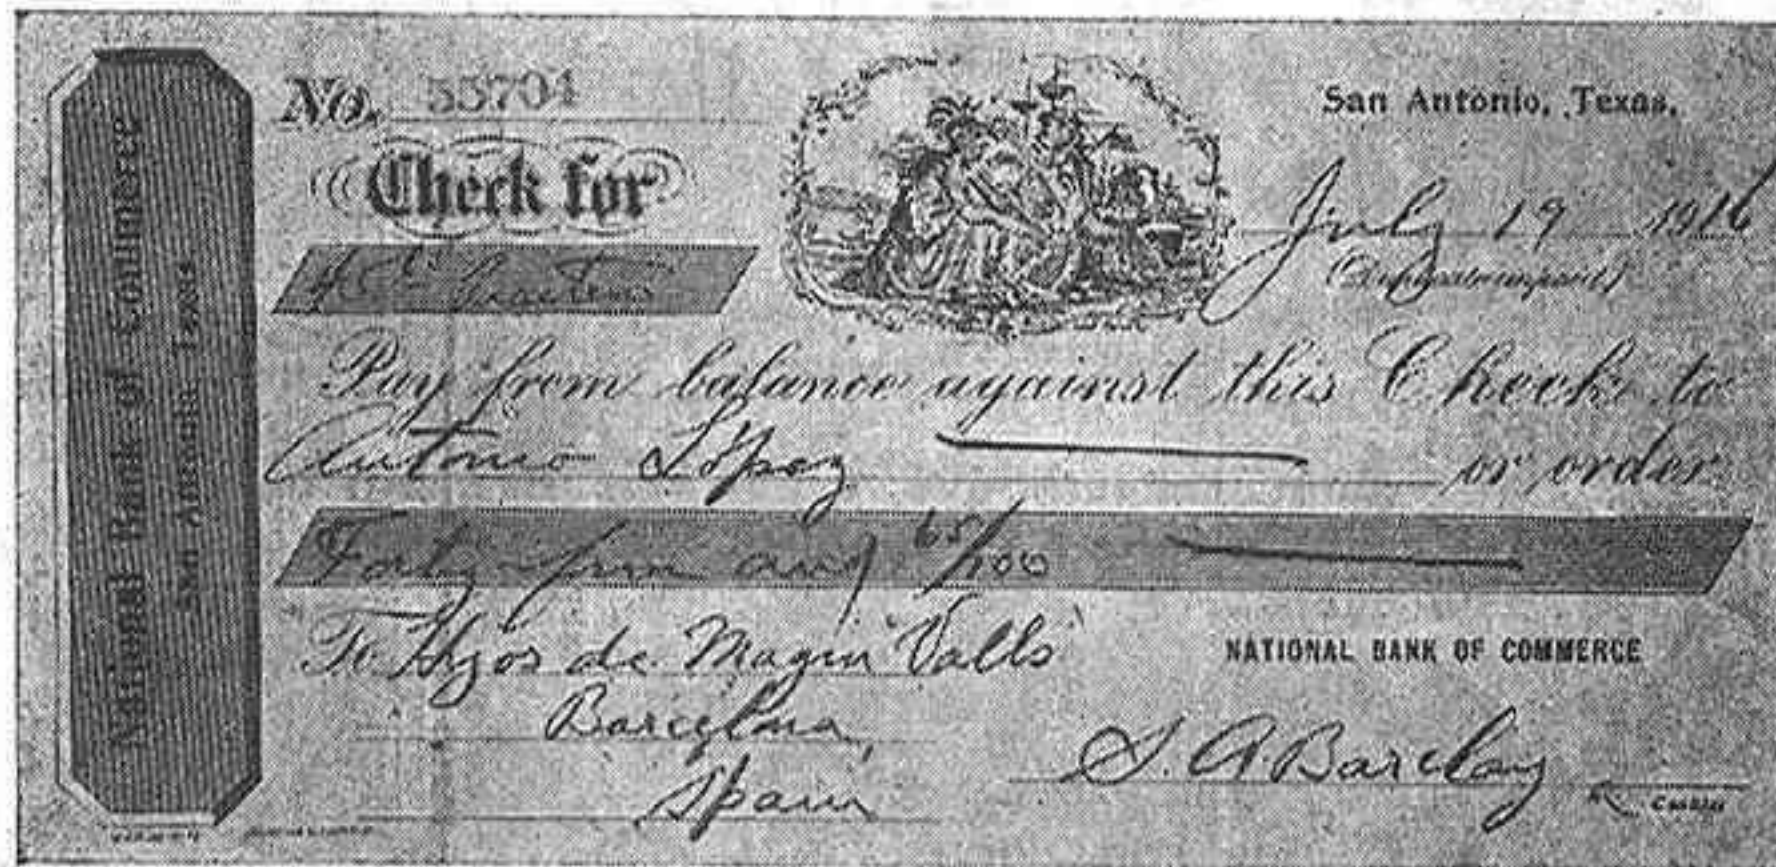 National Bank of Commerce
San Antonio, Texas
No. 55704
Check for
San Antonio, Texas.
July 19 1916
(Duplicate unpaid)
Pay from balance against this Check to
Antonio López or order
and 65/100
To Hijos de Magin Valls
Barcelona,
Spain
NATIONAL BANK OF COMMERCE
J. A. Barclay
Cashier